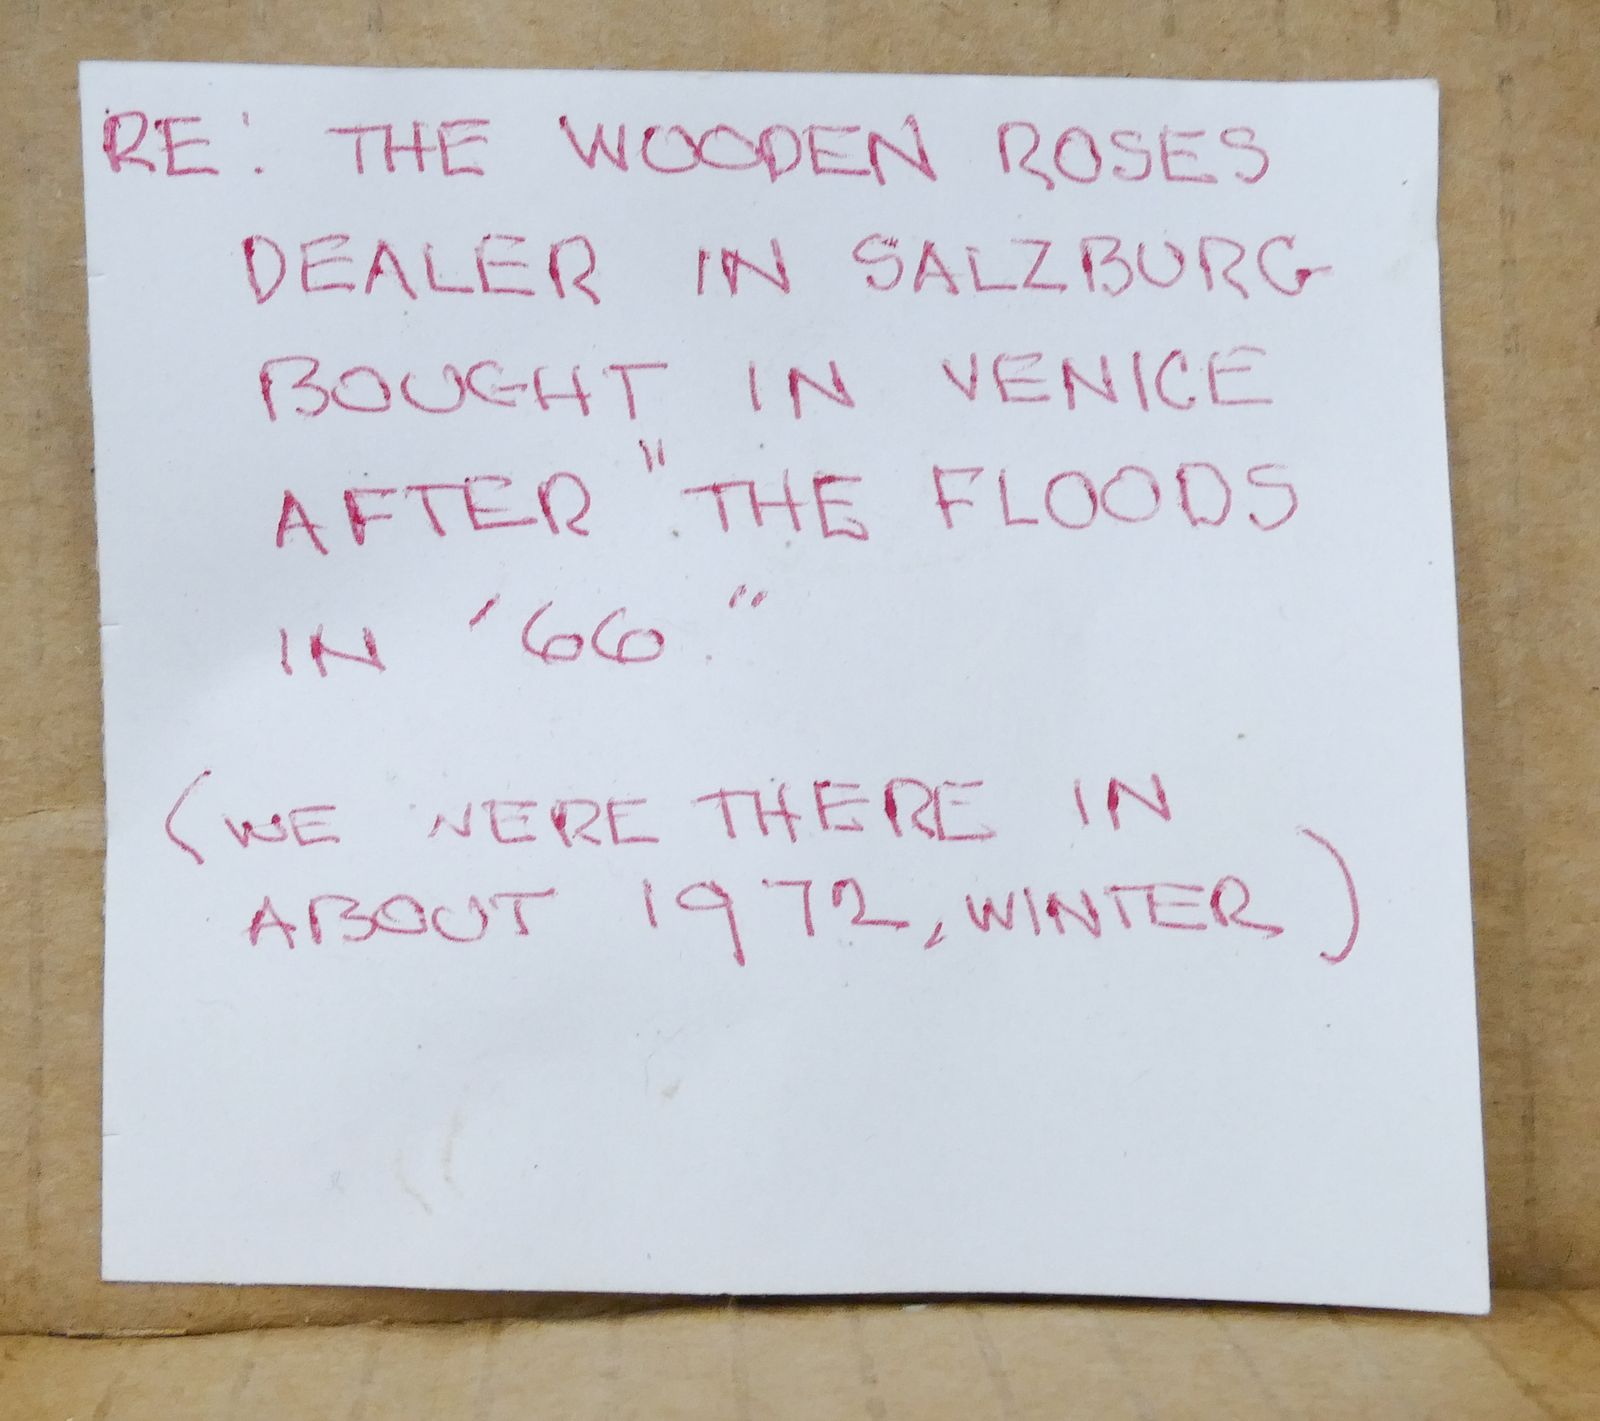 RE: THE WOODEN ROSES
DEALER IN SALZBURG
BOUGHT IN VENICE
AFTER "THE FLOODS
IN '66."
(WE WERE THERE IN
ABOUT 1972, WINTER)